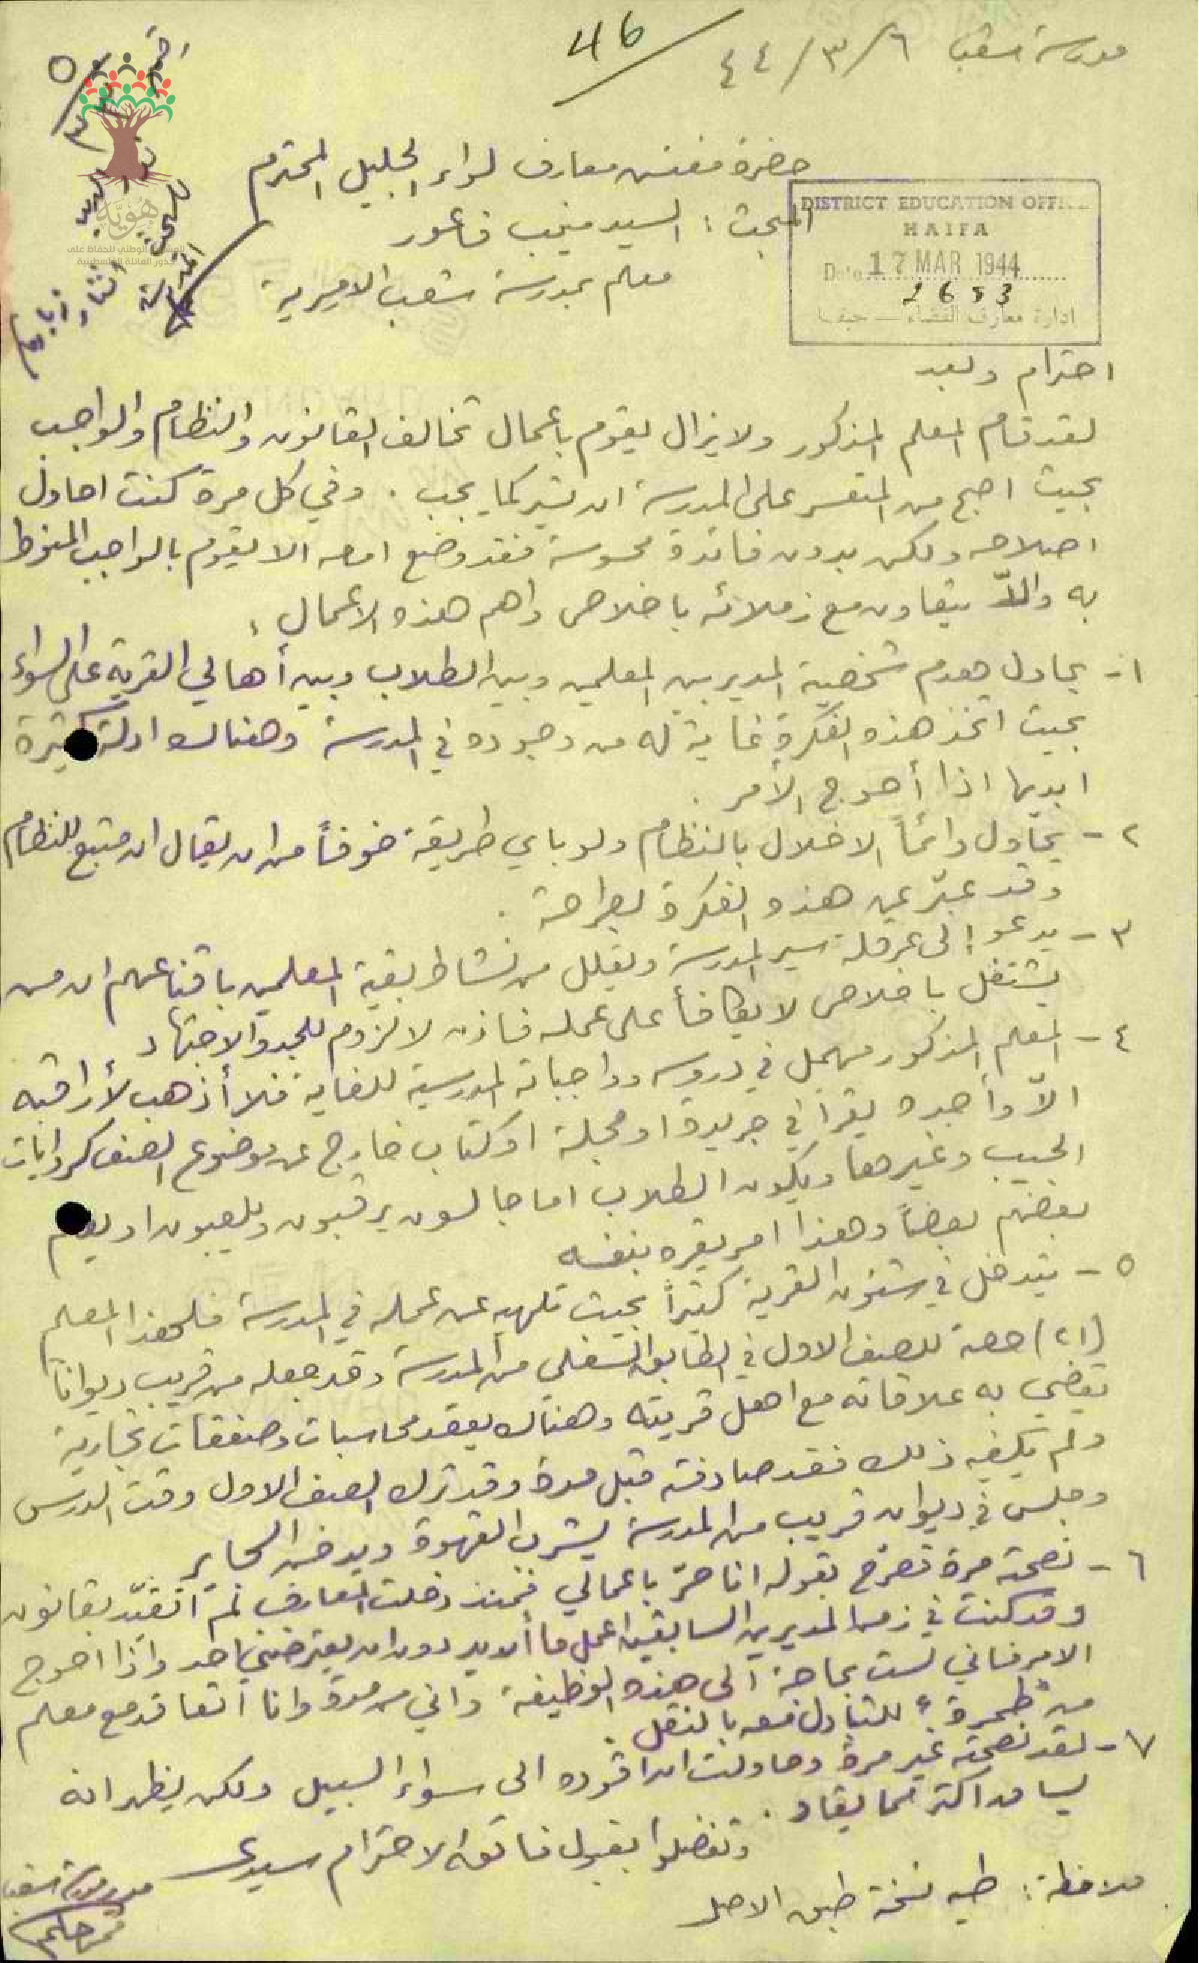 مدرسة شعب ٦/٣/٤٤
46
حضرة مفتش معارف لواء الجليل المحترم
المبحث : السيد منيب فاعور
معلم بمدرسة شعب الاميرية
DISTRICT EDUCATION OFFICE
HAIFA
Date 17 MAR 1944
2653
ادارة معارف القضاء — حيفا
هوية
المشروع الوطني للحفاظ على
جذور العائلة الفلسطينية
احترام وبعد
لقد قام المعلم المذكور ولا يزال يقوم بأعمال تخالف القانون والنظام والواجب
بحيث اصبح من المتعسر على المدرسة ان تسير كما يجب . وفي كل مرة كنت احاول
اصلاحه ولكن بدون فائدة محسوسة فقد وضع امامه الا يقوم بالواجب المنوط
به والاّ يتعاون مع زملائه باخلاص واهم هذه الاعمال :
١- يحاول هدم شخصية المدير بين المعلمين وبين الطلاب وبين أهالي القرية على السواء
بحيث اتخذ هذه الفكرة غاية له من وجوده في المدرسة وهناك ادلة كثيرة
ابديها اذا أحوج الأمر .
٢- يحاول دائماً الاخلال بالنظام ولو باي طريقة خوفاً من ان يقال ان متبع للنظام
وقد عبّر عن هذه الفكرة بصراحة .
٣- يدعو إلى عرقلة سير المدرسة ويقلل من نشاط بقية المعلمين باقناعهم ان من
يشتغل باخلاص لا يكافأ على عمله فاذن لا لزوم للجد والاجتهاد
٤- المعلم المذكور مهمل في دروسه وواجباته المدرسية للغاية فلا أذهب لأراقبه
الاّ وأجده يقرأ في جريدة او مجلة او كتاب خارج عن موضوع الصف كروايات
الجيب وغيرها ويكون الطلاب اما جالسون يرقبون ويلعبون او
بعضهم بعضاً وهذا امر يقره بنفسه
٥- يتدخل في شئون القرية كثيراً بحيث تلهيه عن عمله في المدرسة فلهذا المعلم
(٢١) حصة للصف الاول في الطابق السفلي من المدرسة وقد جعله من قريب ديواناً
يقضي به علاقاته مع اهل قريته وهناك يعقد محاسبات وصفقات تجارية
ولم يكفيه ذلك فقد صادفته قبل مدة وقد ترك الصف الاول وقت الدرس
وجلس في ديوان قريب من المدرسة يشرب القهوة ويدخن السجاير
٦- نصحته مرة فصرّح بقوله انا حرّ باعمالي فمنذ دخلت المعارف لم اتقيّد بقانون
وقد كنت في زمن المديرين السابقين اعمل ما أريد دون ان يعترضني احد واذا احوج
الامر فاني لست بحاجة الى هذه الوظيفة واني من مدة وانا اتعاقد مع معلم
من "طمرة" للتبادل معه بالنقل .
٧- لقد نصحته غير مرة وحاولت ان اقوده الى سواء السبيل ولكن يظهر انه
يساق اكثر مما يقاد .
وتفضلوا بقبول فائق الاحترام سيدي
ملاحظة : طيه نسخة طبق الاصل
مدير مدرسة شعب